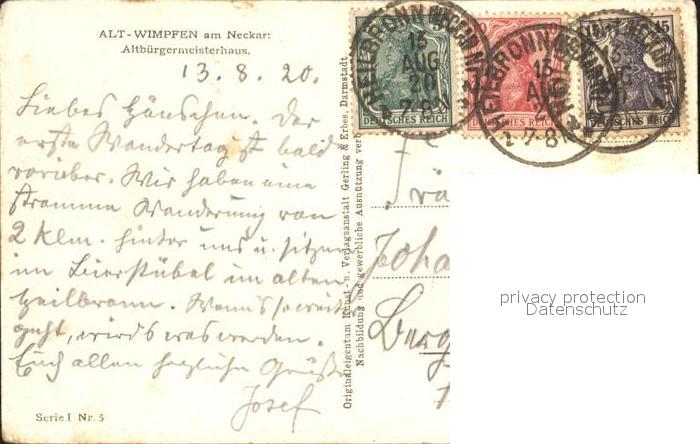 ALT-WIMPFEN am Neckar:
Altbürgermeisterhaus.
13.8.20.
Liebes Hänschen. Der
erste Wandertag ist bald
vorüber. Wir haben eine
stramme Wanderung von
2 Klm. hinter uns u. sitzen
im Bierstübel im alten
Heilbronn. Wenn's so weiter
geht, wird's was werden.
Euch allen herzliche Grüße
Josef
Serie I Nr. 5
Originaleigentum Kunst- u. Verlagsanstalt Gerling & Erbes, Darmstadt.
Nachbildung und gewerbliche Ausnützung verb
HEILBRONN (NECKAR)
15
AUG
20
7-8
DEUTSCHES REICH
HEILBRONN (NECKAR)
15
AUG
7-8
DEUTSCHES REICH
15
15
DEUTSCHES REICH
Frä
Joha
Burg
privacy protection
Datenschutz